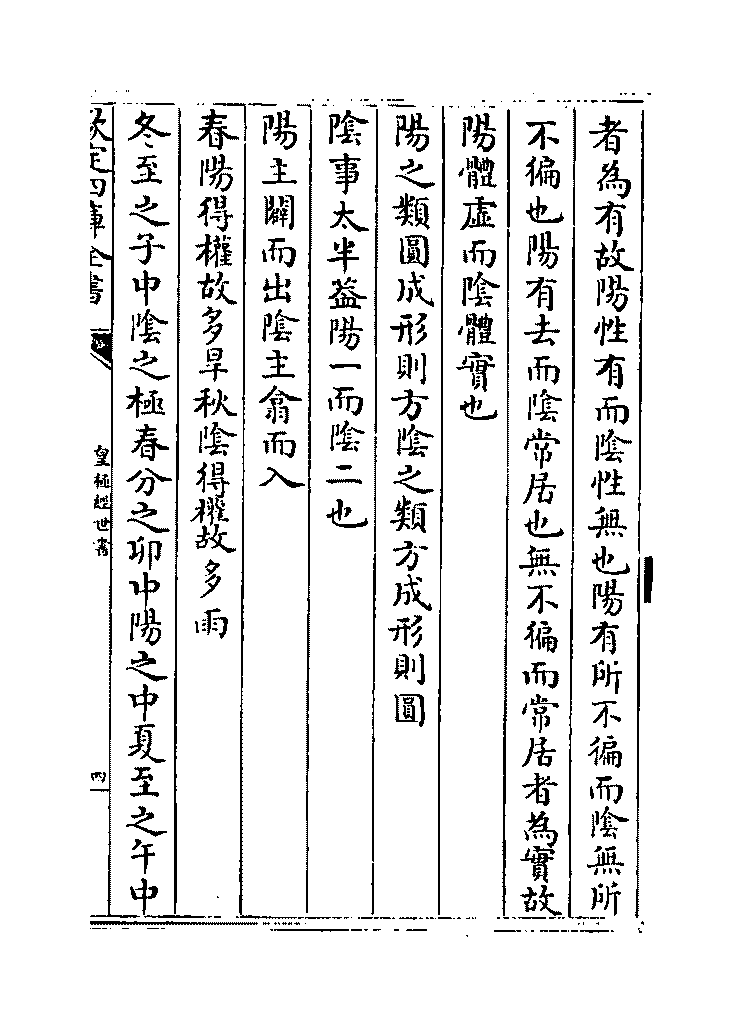 者為有故陽性有而陰性無也陽有所不徧而陰無所
不徧也陽有去而陰常居也無不徧而常居者為實故
陽體虛而陰體實也
陽之類圓成形則方陰之類方成形則圓
陰事太半葢陽一而陰二也
陽主闢而出陰主翕而入
春陽得權故多旱秋陰得權故多雨
冬至之子中陰之極春分之卯中陽之中夏至之午中
欽定四庫全書
皇極經世書
四